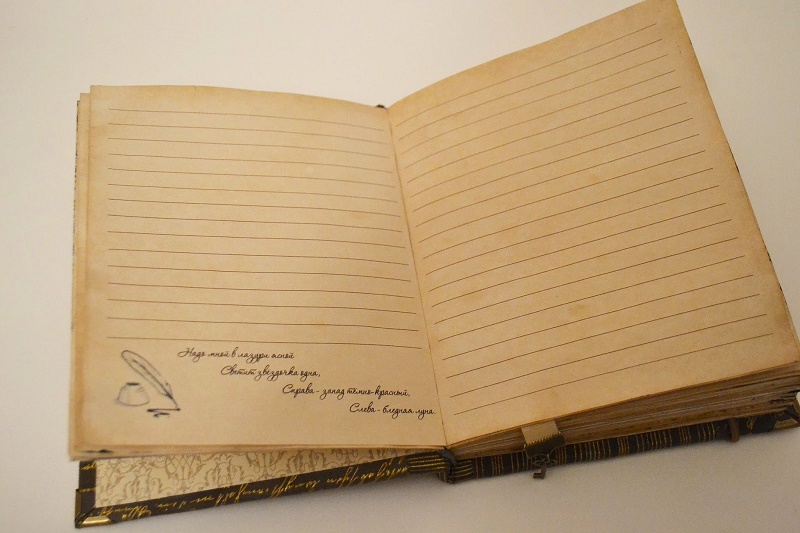 Надо мной в лазури ясной
Светит звёздочка одна,
Справа - запад тёмно-красный,
Слева - бледная луна.